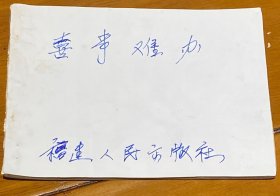 喜事难办
福建人民出版社